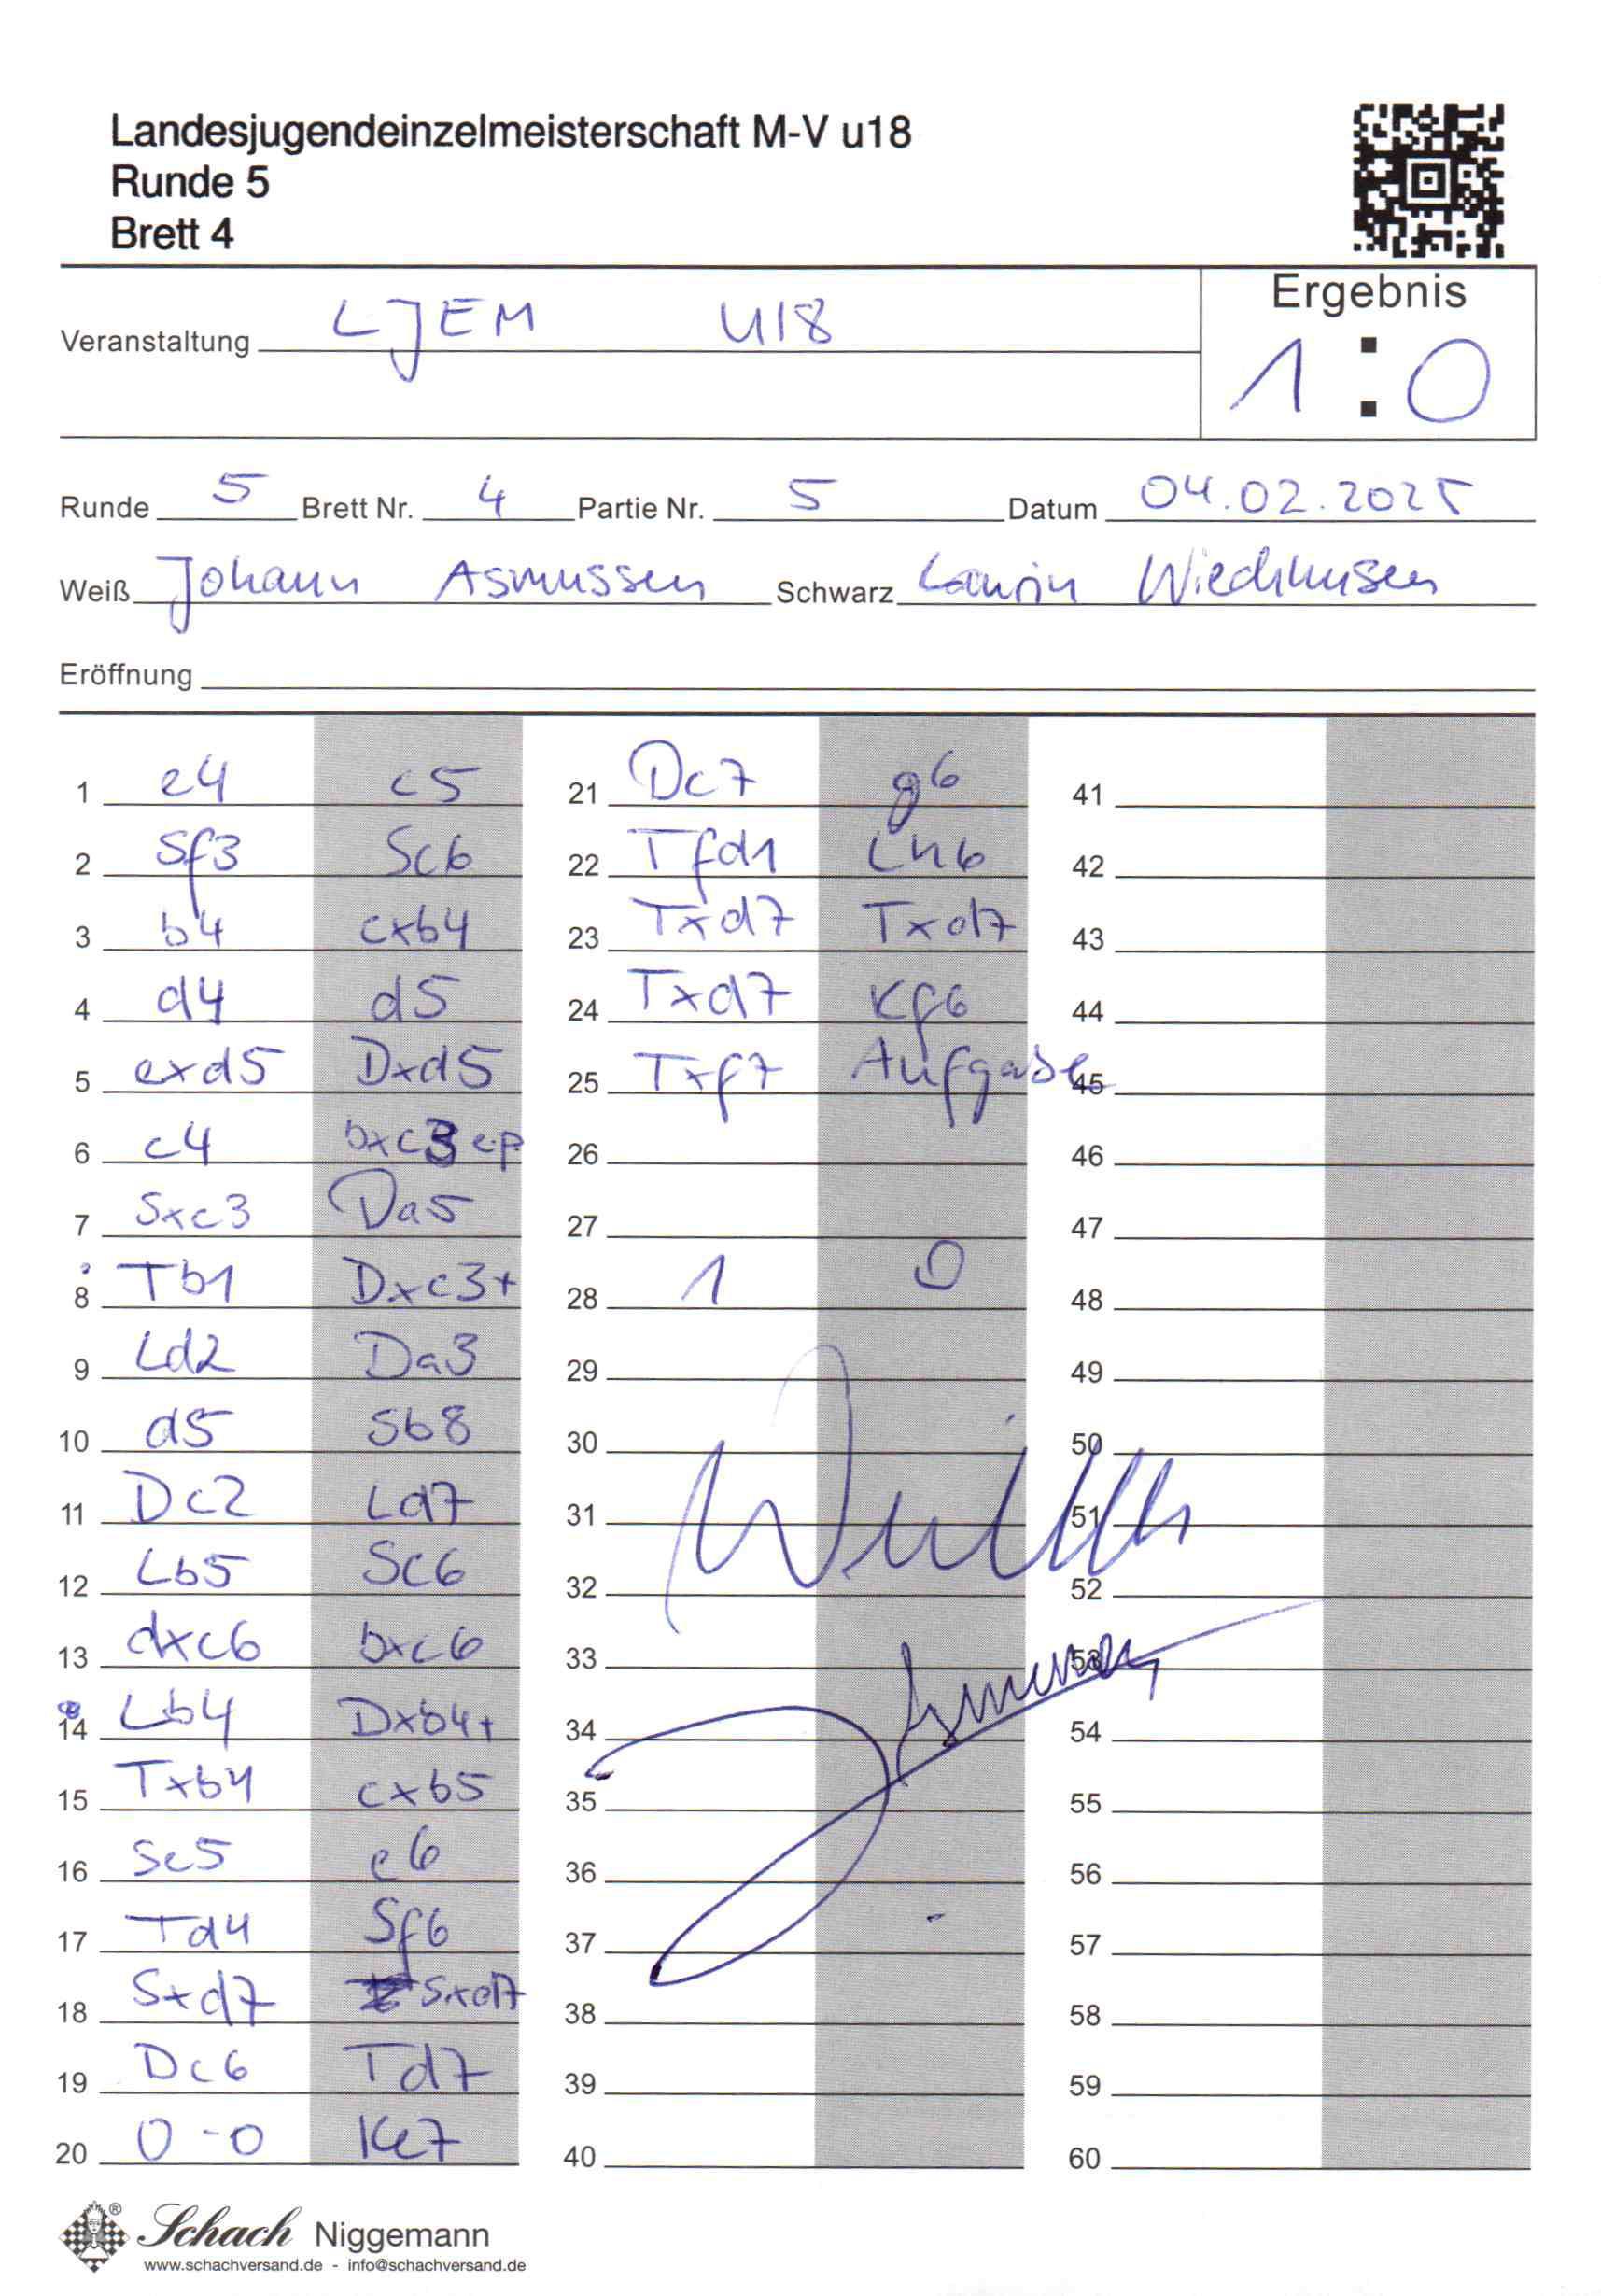 Landesjugendeinzelmeisterschaft M-V u18
Runde 5
Brett 4
Ergebnis
Veranstaltung LJEM U18
1 : 0
Runde 5 Brett Nr. 4 Partie Nr. 5 Datum 04.02.2025
Weiß Johann Asmussen Schwarz
Eröffnung
1 e4 c5 21 Dc7 g6 41
2 Sf3 Sc6 22 Tfd1 Lh6 42
3 b4 cxb4 23 Txd7 Txd7 43
4 d4 d5 24 Txd7 Kf6 44
5 exd5 Dxd5 25 Txf7 Aufgabe 45
6 c4 bxc3 e.p 26 46
7 Sxc3 Da5 27 47
8 Tb1 Dxc3+ 28 1 0 48
9 Ld2 Da3 29 49
10 d5 Sb8 30 50
11 Dc2 Ld7 31 51
12 Lb5 Sc6 32 52
13 dxc6 bxc6 33 53
14 Lb4 Dxb4+ 34 54
15 Txb4 cxb5 35 55
16 Se5 e6 36 56
17 Td4 Sf6 37 57
18 Sxd7 Sxd7 38 58
19 Dc6 Td7 39 59
20 0-0 Ke7 40 60
® Schach Niggemann
www.schachversand.de - info@schachversand.de